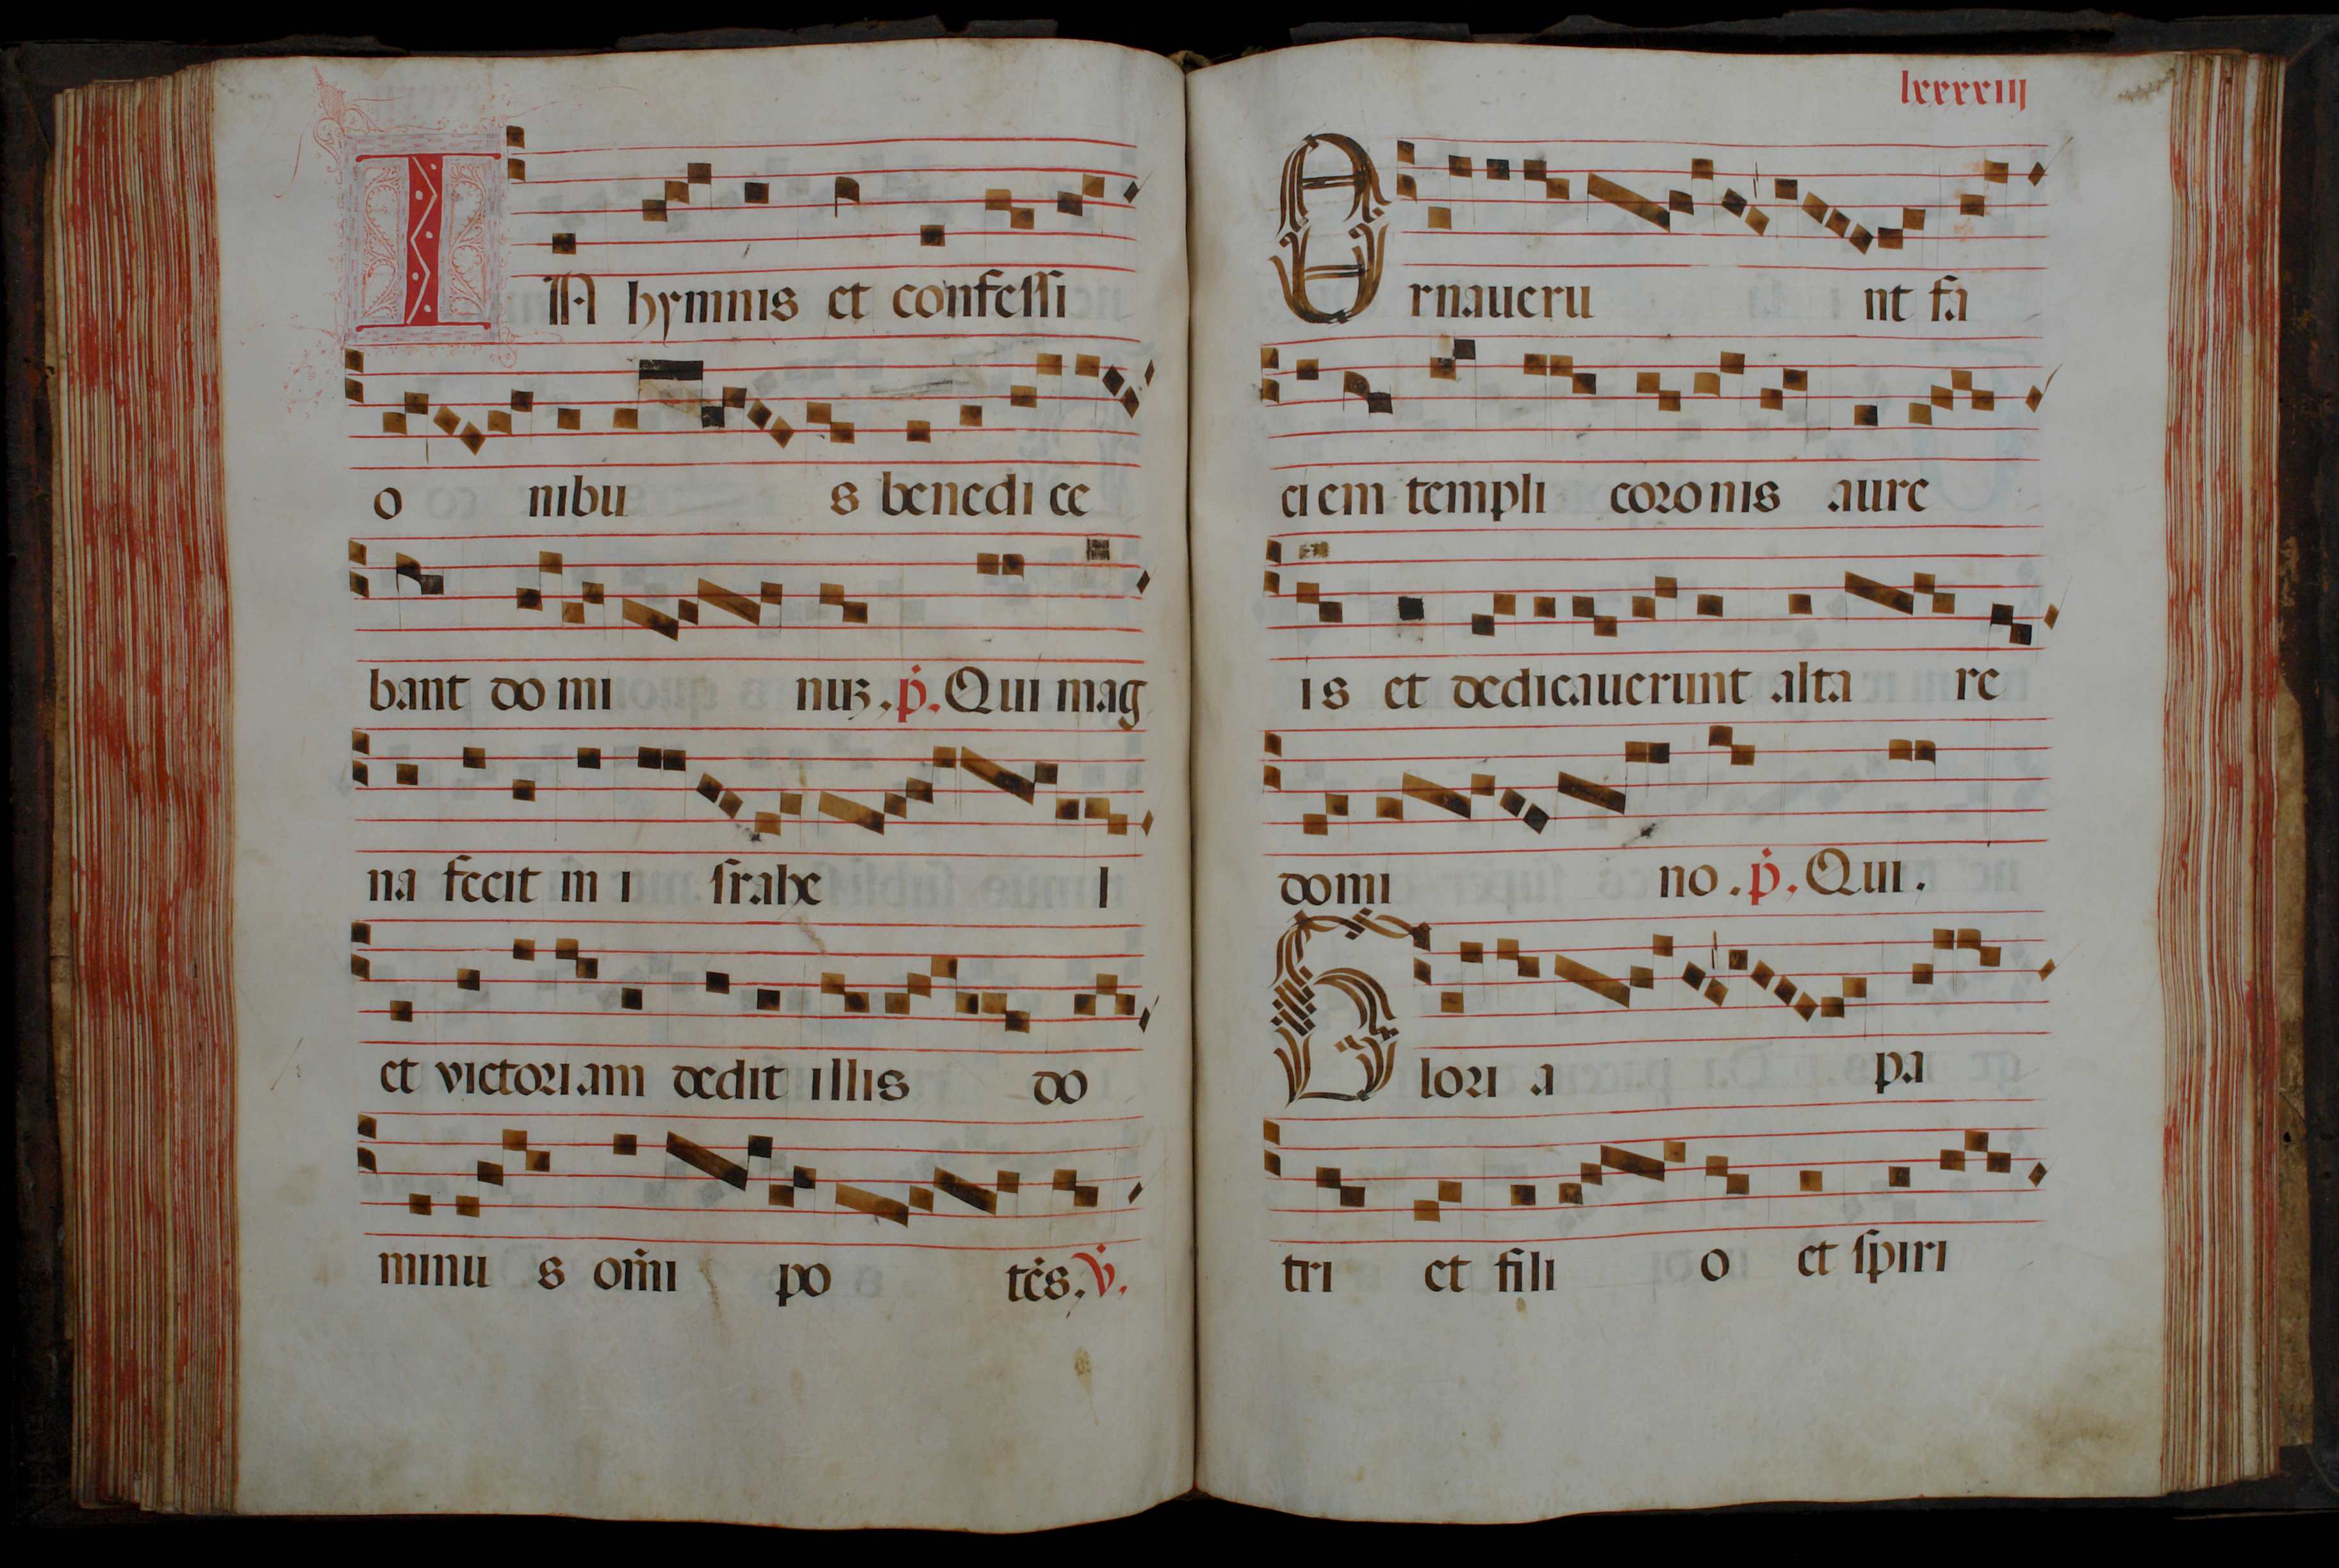 IN hymnis et confessi
o nibu s benedi ce
bant do mi nuʒ. p̄. Qui mag
na fecit in i srahe l
et victoriam dedit illis do
minu s om̄i po tēs. v̄.
lxxxxiij
Ornaueru nt fa
ciem templi coronis aure
is et dedicauerunt alta re
domi no. p̄. Qui.
Glori a pa
tri et fili o et spiri